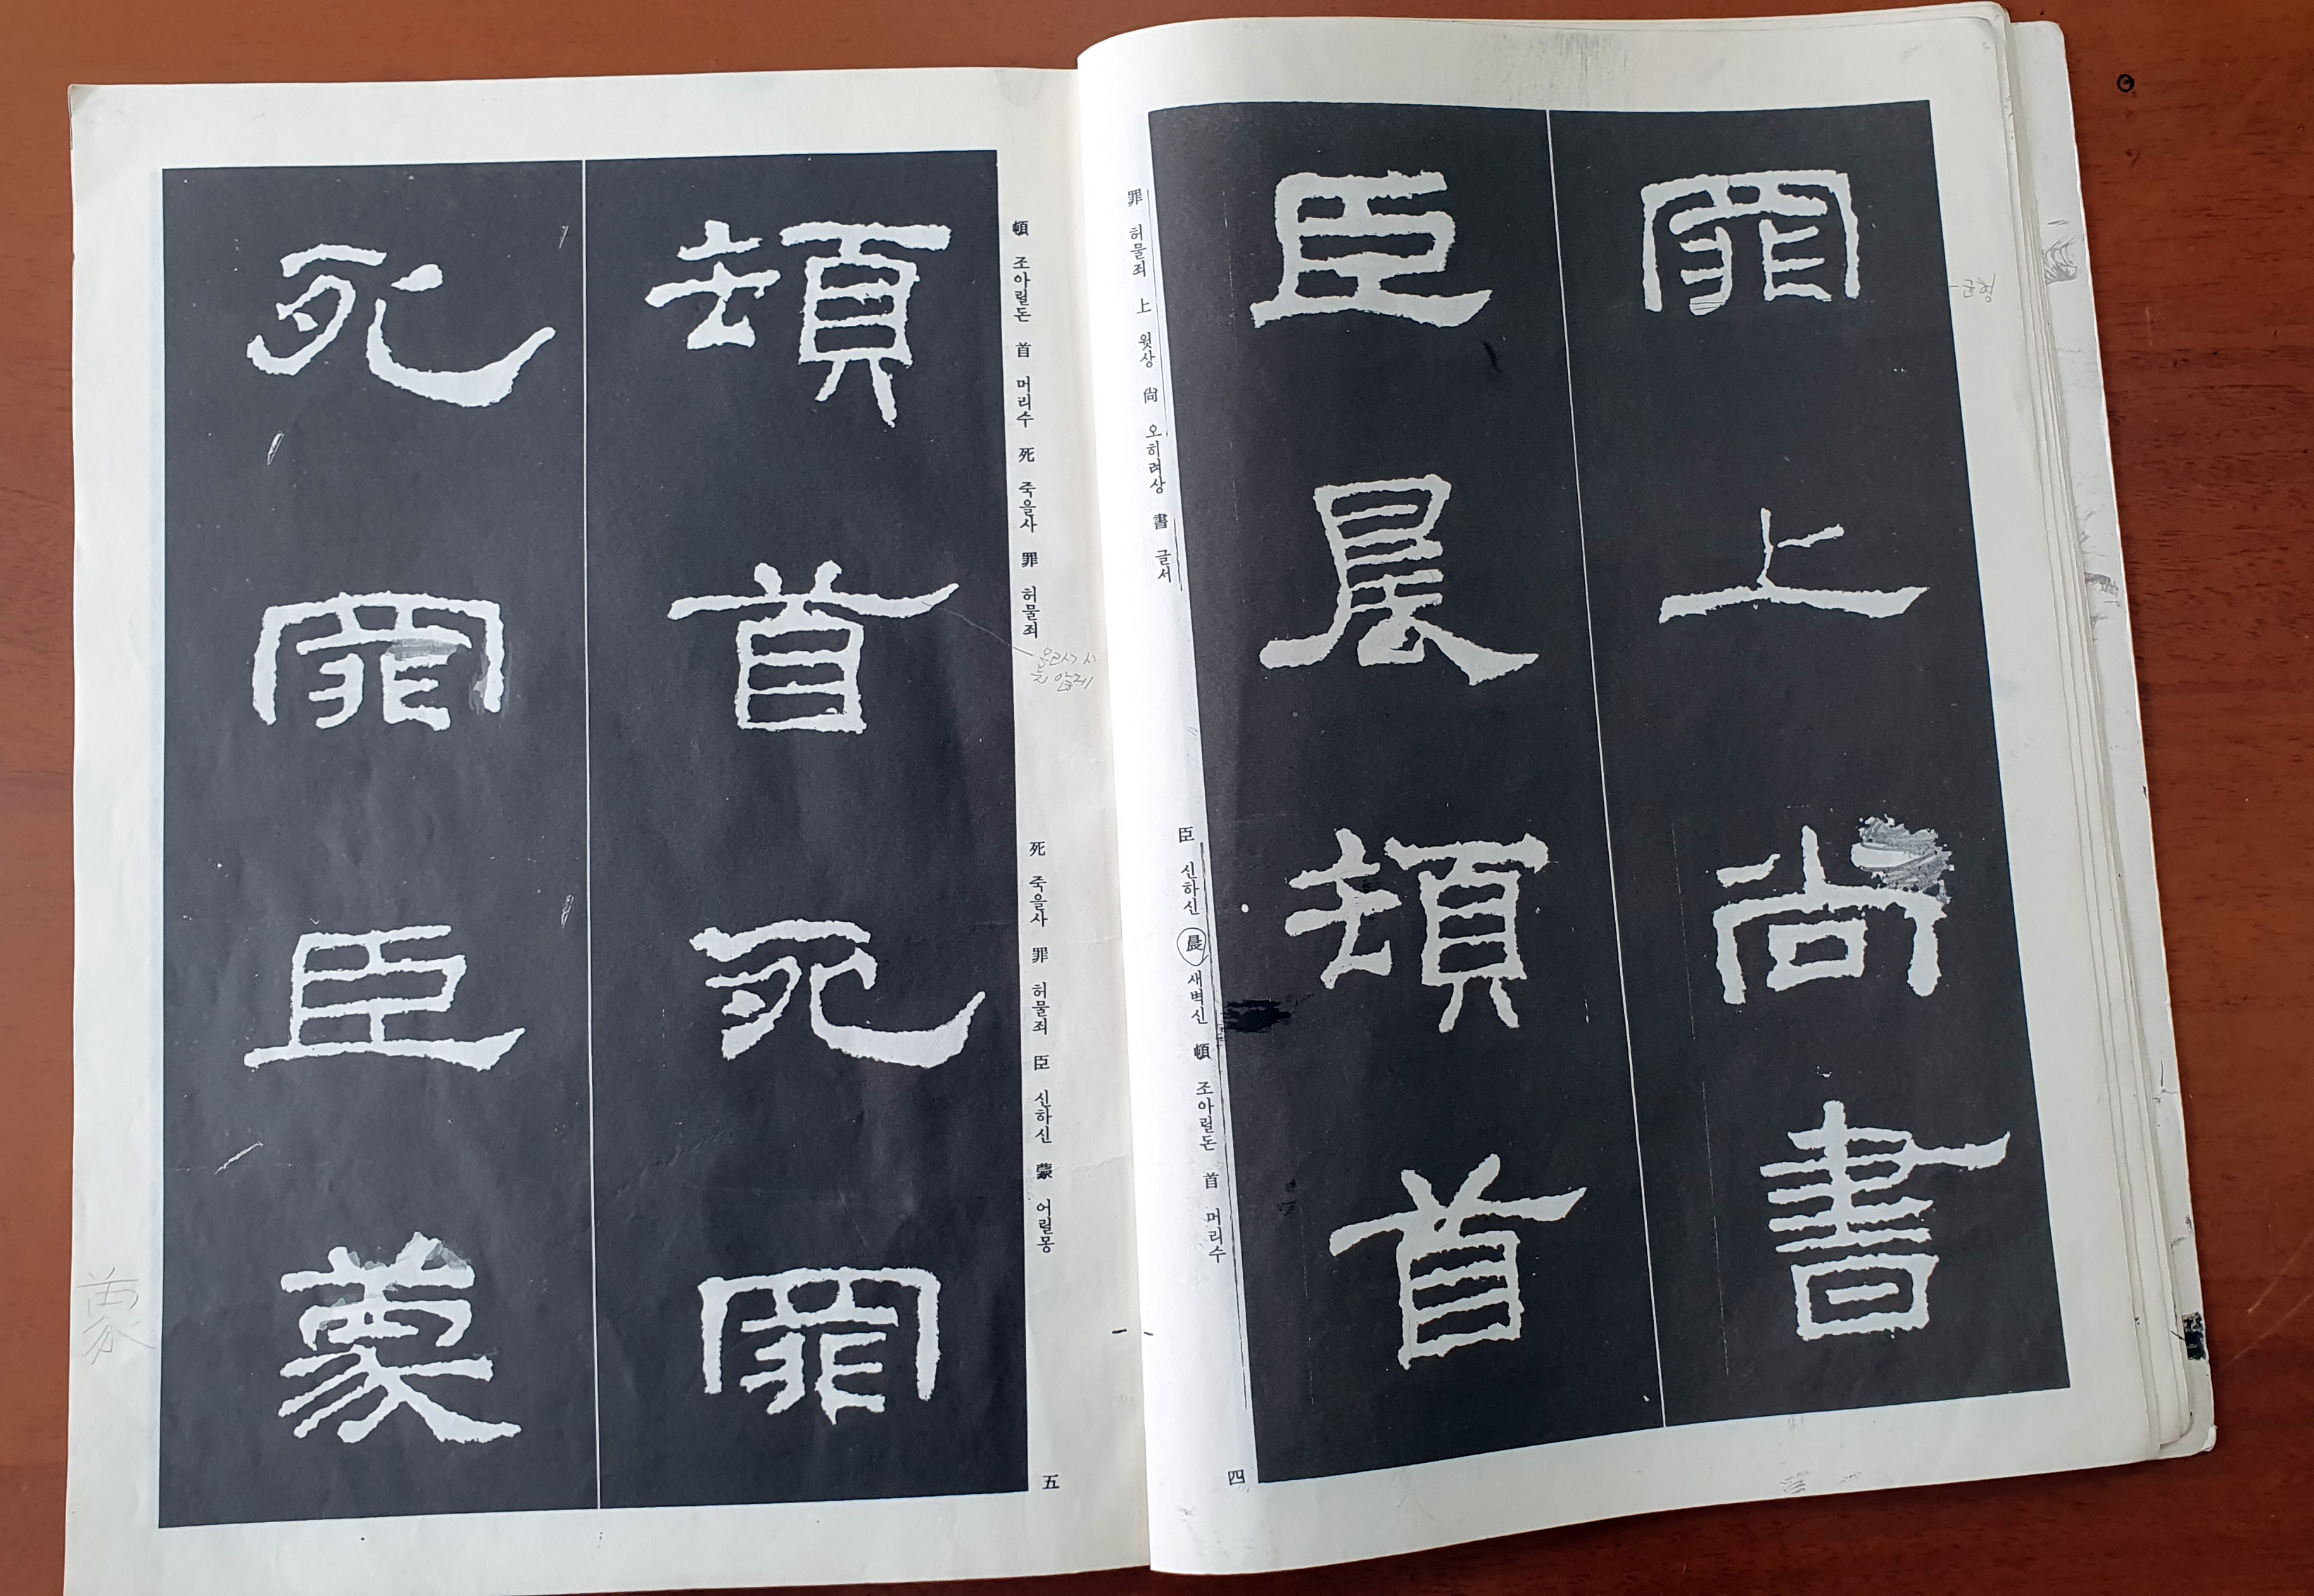 罪上尚書
臣晨頓首
罪 허물죄 上 윗상 尙 오히려상 書 글서
臣 신하신 晨 새벽신 頓 조아릴돈 首 머리수
四
頓首死罪
死罪臣蒙
頓 조아릴돈 首 머리수 死 죽을사 罪 허물죄
死 죽을사 罪 허물죄 臣 신하신 蒙 어릴몽
五